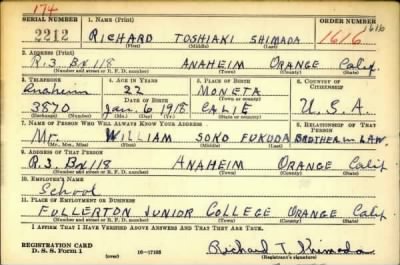 174
SERIAL NUMBER 1. NAME (Print) ORDER NUMBER
2212 RICHARD TOSHIAKI SHIMADA 1616 1616
(First) (Middle) (Last)
2. ADDRESS (Print)
R.3 Bx 118 ANAHEIM ORANGE Calif.
(Number and street or R. F. D. number) (Town) (County) (State)
3. TELEPHONE 4. AGE IN YEARS 5. PLACE OF BIRTH 6. COUNTRY OF CITIZENSHIP
Anaheim 22 MONETA
DATE OF BIRTH (Town or county)
3870 Jan. 6 1918 CALIF U.S.A.
(Exchange) (Number) (Mo.) (Day) (Yr.) (State or country)
7. NAME OF PERSON WHO WILL ALWAYS KNOW YOUR ADDRESS 8. RELATIONSHIP OF THAT PERSON
Mr. WILLIAM SOKO FUKUDA BROTHER in LAW
(Mr., Mrs., Miss) (First) (Middle) (Last)
9. ADDRESS OF THAT PERSON
R.3, Bx 118 ANAHEIM ORANGE Calif
(Number and street or R. F. D. number) (Town) (County) (State)
10. EMPLOYER'S NAME
School
11. PLACE OF EMPLOYMENT OR BUSINESS
FULLERTON JUNIOR COLLEGE ORANGE Calif
(Number and street or R. F. D. number) (Town) (County) (State)
I AFFIRM THAT I HAVE VERIFIED ABOVE ANSWERS AND THAT THEY ARE TRUE.
REGISTRATION CARD
D. S. S. FORM 1 (over) 16-17105 Richard T. Shimada
(Registrant's signature)